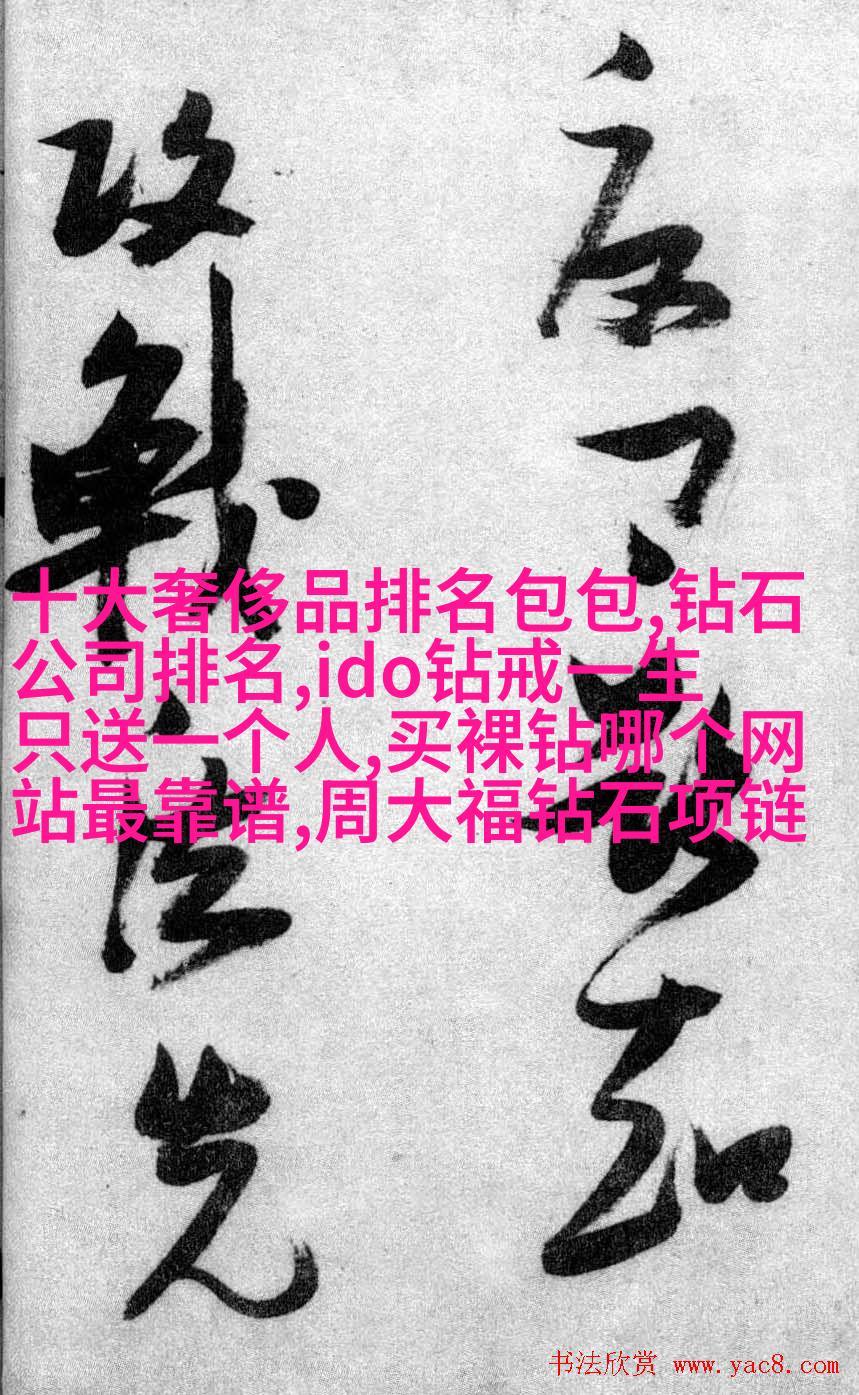 攻戰
先
十大奢侈品排名包包,钻石
公司排名,ido钻戒一生
只送一个人,买裸钻哪个网
站最靠谱,周大福钻石项链
书法欣赏 www.yac8.com